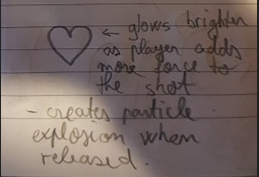 ← glows brighter
as player adds
more force to
the shot
- creates particle
explosion when
released.